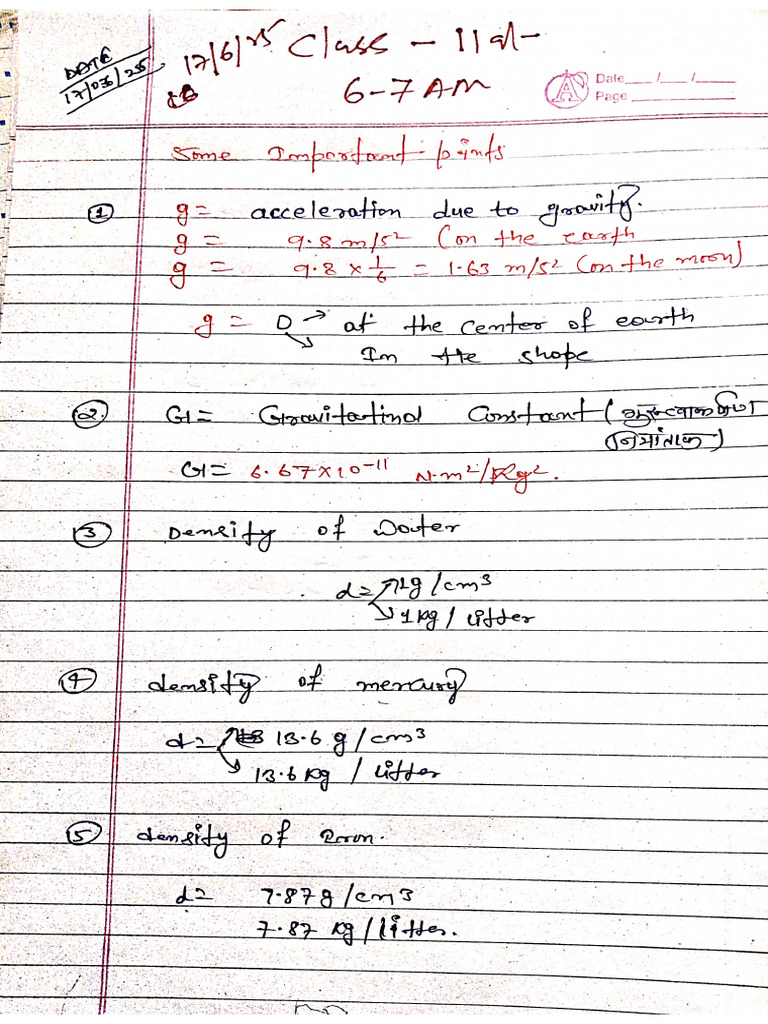 DATE
17/06/25
17/6/25 Class - 11th
6-7 AM
Date___/___/___
Page
Some Important points
① g = acceleration due to gravity.
g = 9.8 m/s² (on the earth
g = 9.8 × 1/6 = 1.63 m/s² (on the moon)
g = 0 → at the center of earth
↘ In the shope
② G = Gravitatinol Constant (गुरुत्वाकर्षण
नियतांक)
G = 6.67×10⁻¹¹ N·m²/Kg².
③ Density of Water
d = ↗ 1g/cm³
↘ 1 kg / litter
④ density of mercury
d = ↗ 13.6 g/cm³
↘ 13.6 kg / litter
⑤ density of Iron.
d = 7.87 g/cm³
7.87 kg/litter.